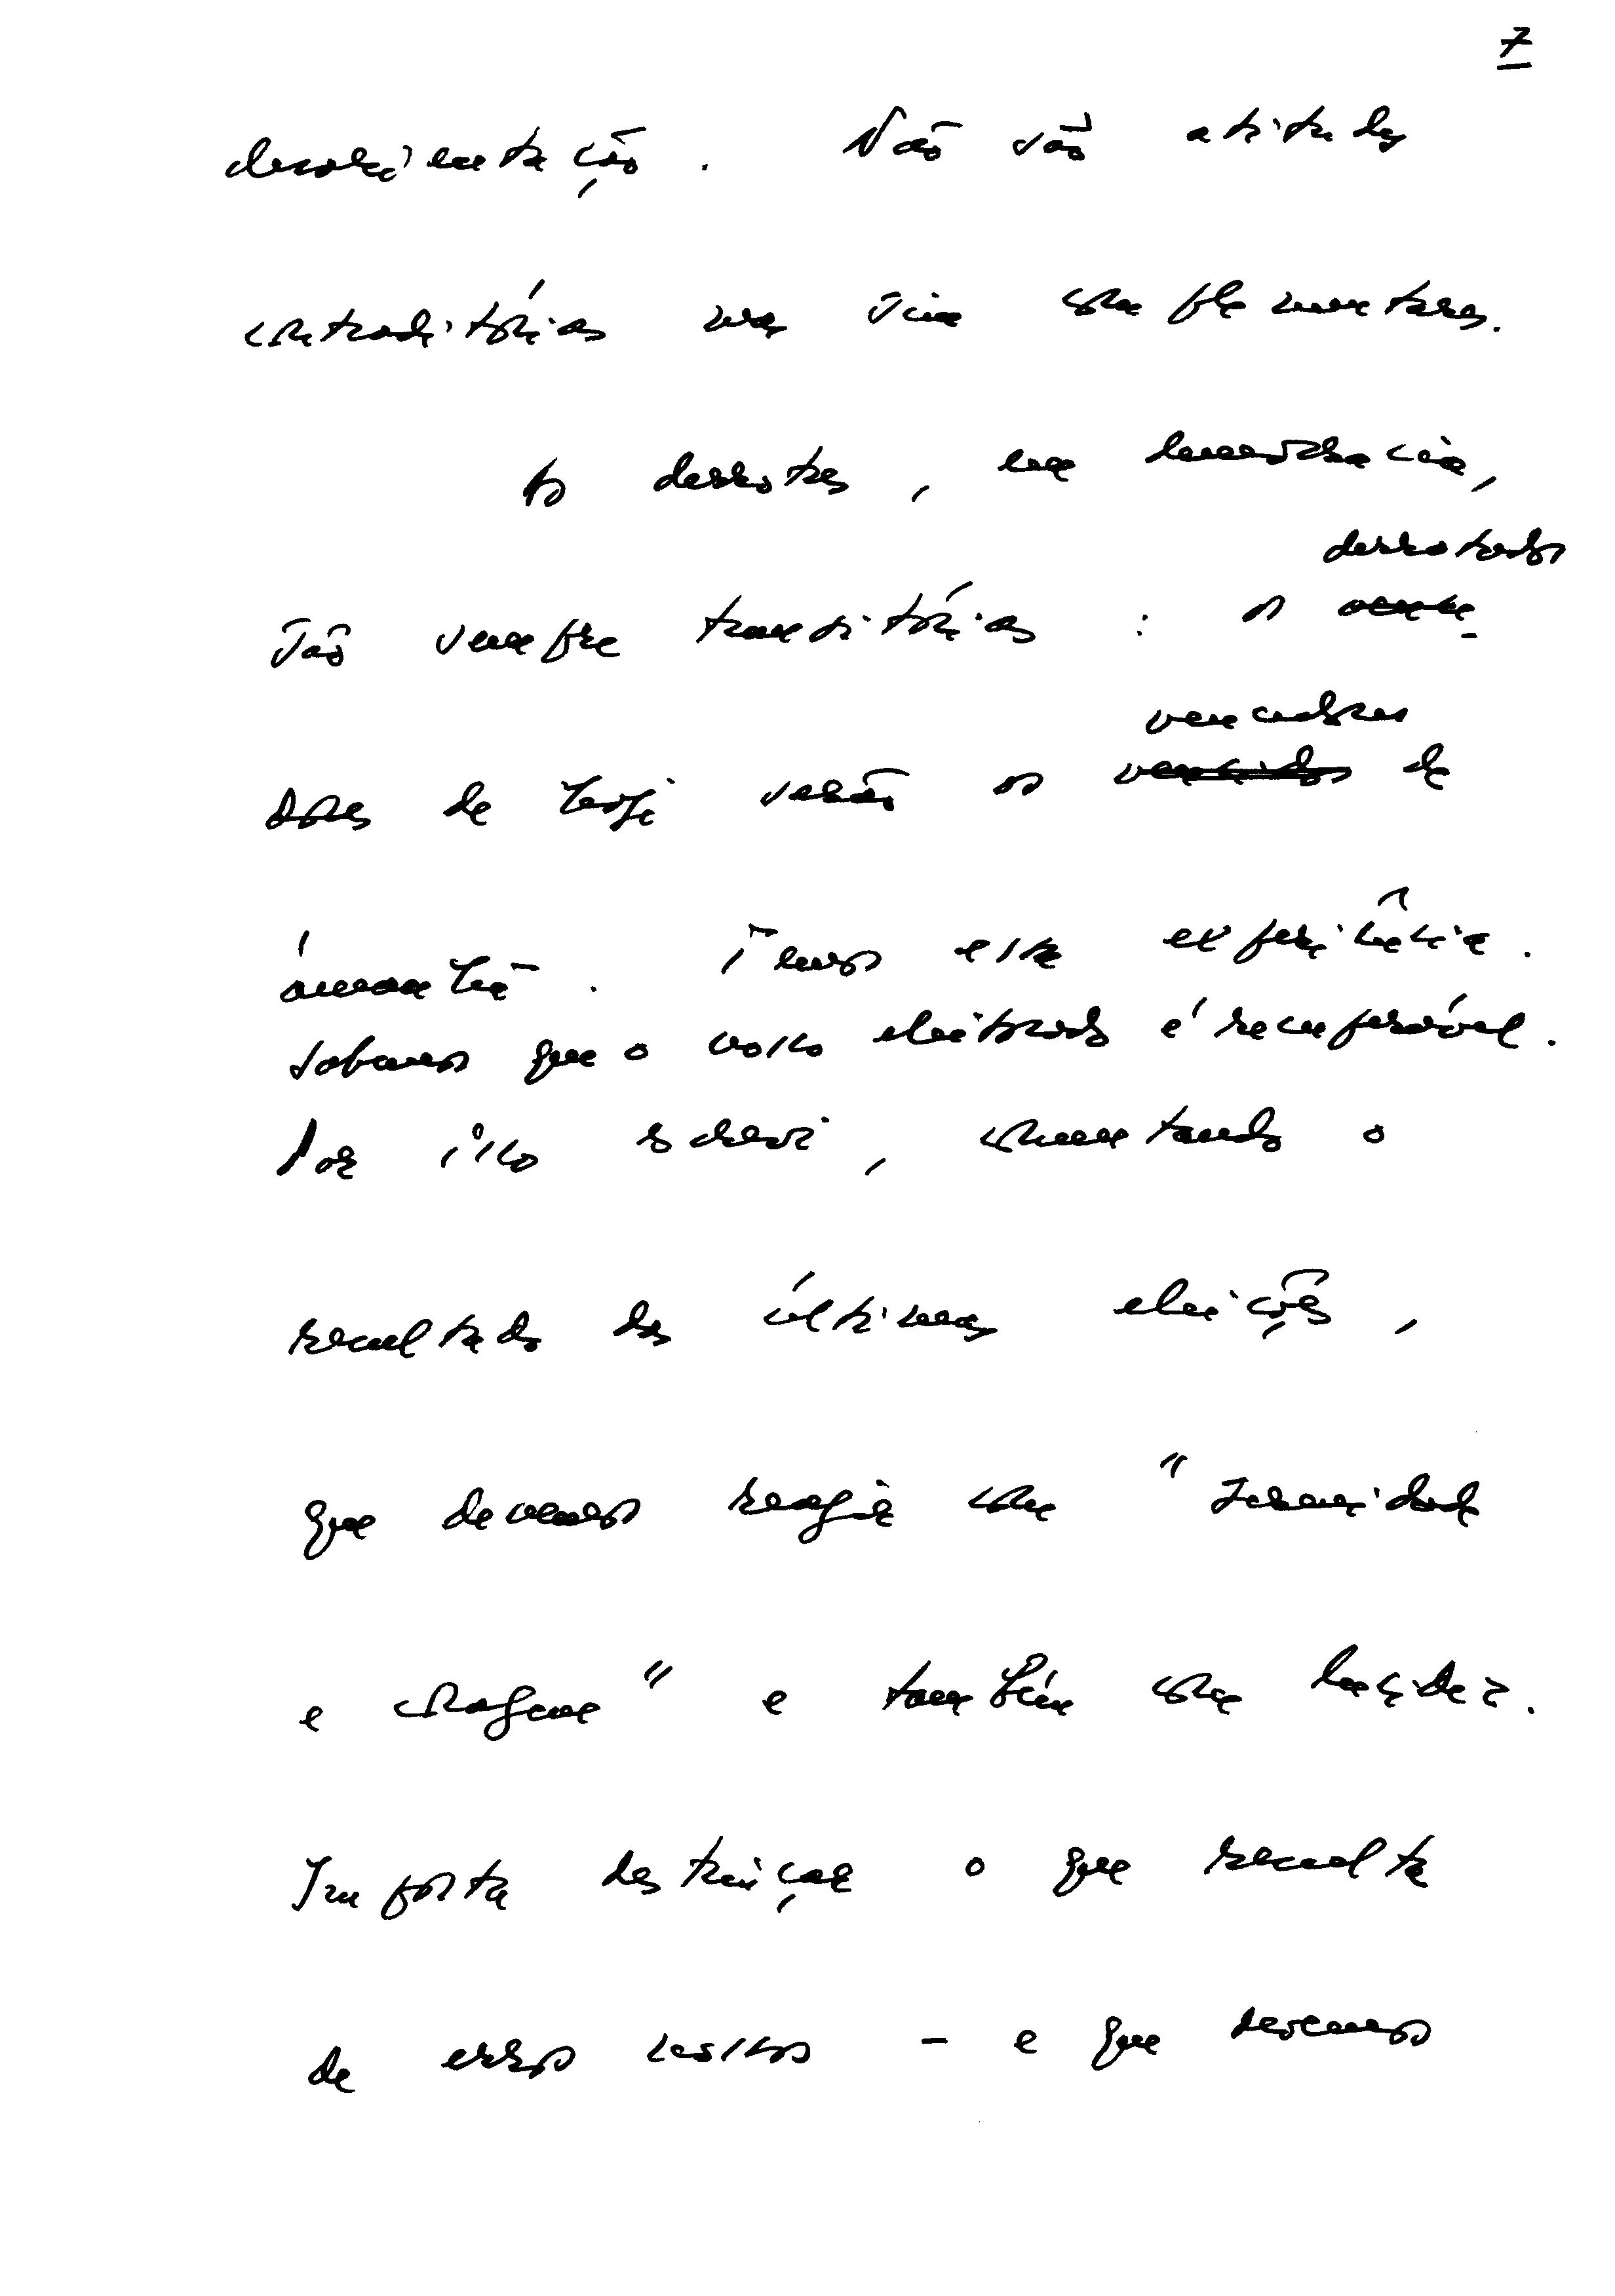 7
desorientação. Não são atitudes
contraditórias mas sim complementares.
As derrotas, em democracia,
derrotados
são sempre transitórias: os vence-
vencedores
dores de hoje serão os vencidos de
amanhã. Temos essa experiência.
Sabemos que o nosso eleitorado é recuperável.
Por isso escrevi, comentando o
resultado das últimas eleições,
que devemos reagir com "serenidade
e coragem" e também com lucidez.
Importa destrinçar o que resulta
de erros nossos - e que devemos